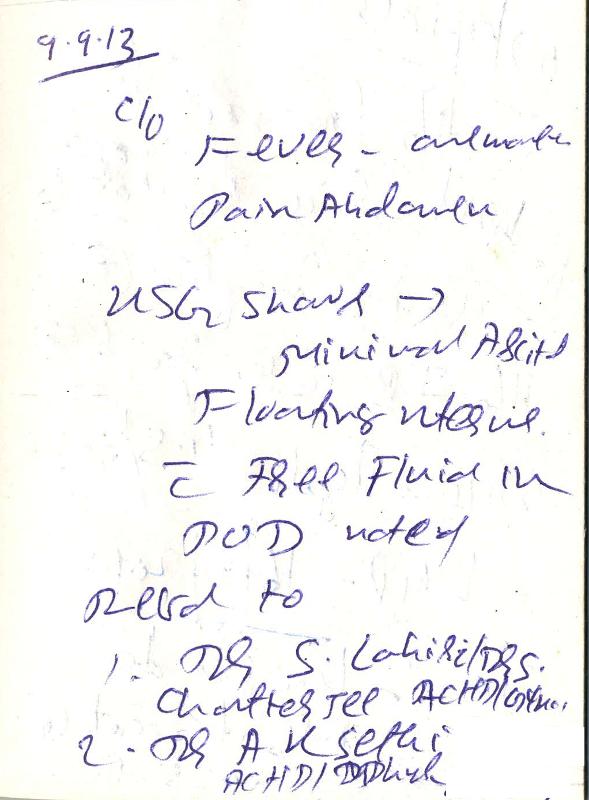 9.9.13
C/o
Fever -
Pain Abdomen
USG shows →
minimal Ascites
Floating uterus.
c̄ Free Fluid in
POD noted
Refd to
1. Dr S. Lahiri/Dr S.
Chatterjee ACHD/Gynae.
2. Dr A K Sethi
ACHD/